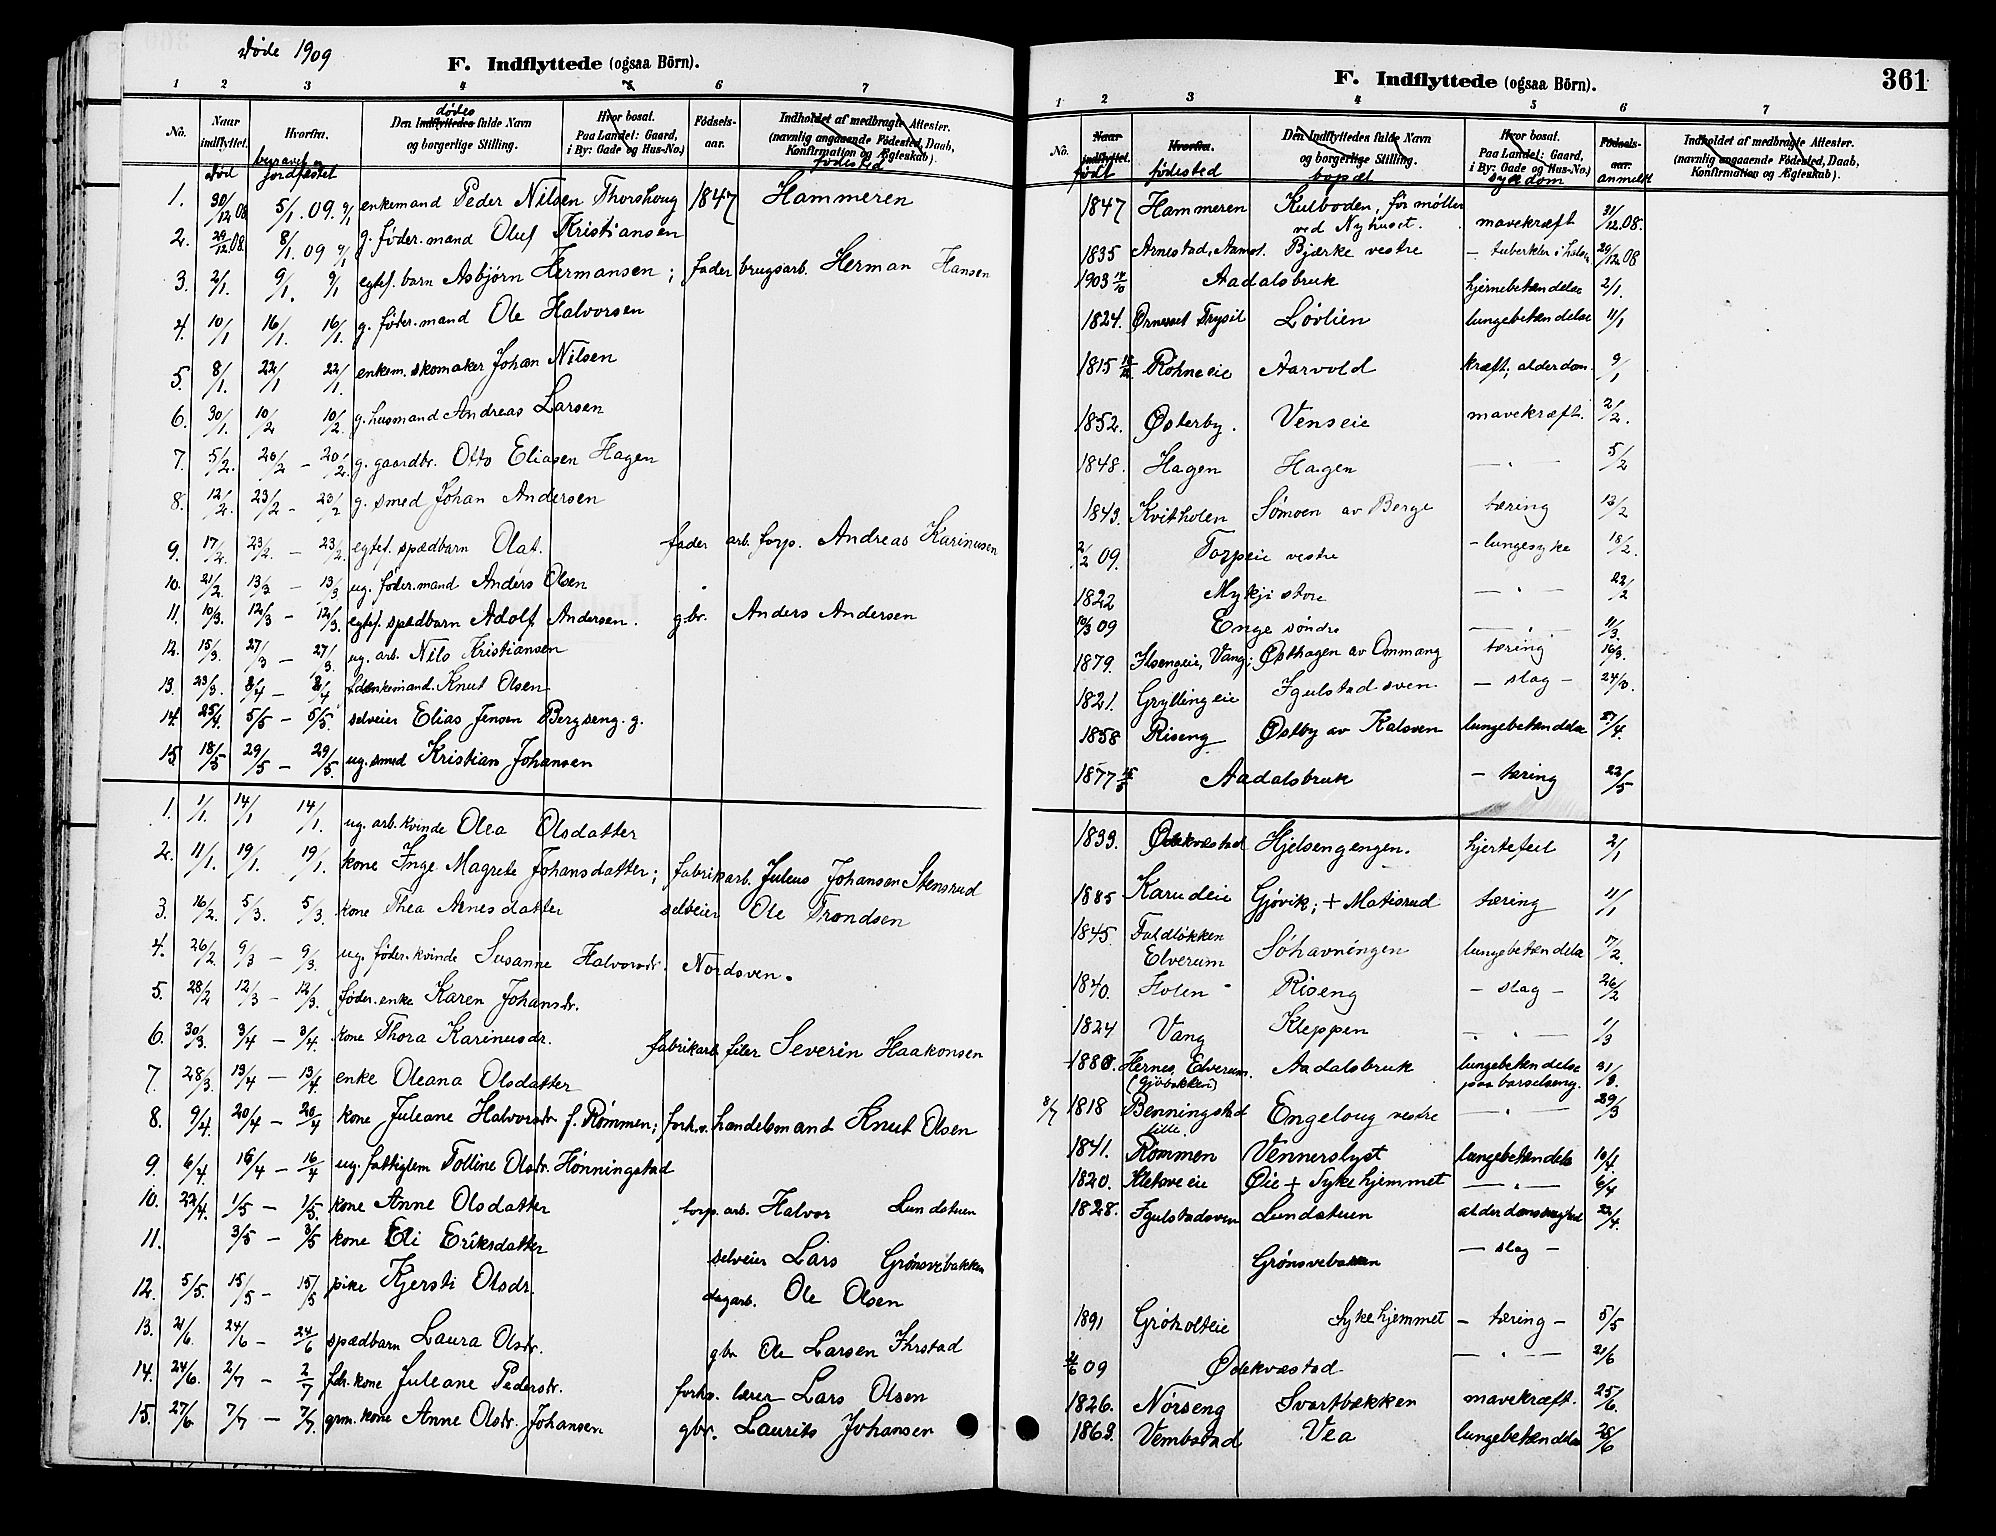 Døde 1909
F. Indflyttede (ogsaa Börn).
1 2 3 4 5 6 7
No. Naar indflyttet. Hvorfra. Den Indflyttedes fulde Navn og borgerlige Stilling. Hvor bosat. Paa Landet: Gaard, i By: Gade og Hus-No.) Födsels-aar. Indholdet af medbragte Attester. (navnlig angaaende Födested, Daab, Konfirmation og Ægteskab).
død begravet jordfæstet dødes fødested
1. 30/12 08 5/1 .09. 9/1 enkemand Peder Nilsen Thorshoug 1847 Hammeren
2. 29/12 08. 8/1 09 9/1 g. føder.mand Oluf Kristiansen
3. 2/1. 9/1. 9/1 egtef. barn Asbjørn Hermansen; fader brugsarb. Herman Hansen
4. 10/1 16/1. 16/1. g. føder.mand Ole Halvorsen
5. 8/1. 22/1 22/1. enkem. skomaker Johan Nilsen
6. 30/1. 10/2 10/2. g. husmand Andreas Larsen
7. 5/2. 20/2 - 20/2. g. gaardbr. Otto Eliasen Hagen
8. 12/2. 23/2 - 23/2 g. smed Johan Andersen
9. 17/2. 23/2. - 23/2. egtef. spædbarn Olaf. fader arb. forp. Andreas Karinusen
10. 21/2. 13/3 - 13/3 ug. føder.mand Anders Olsen
11. 10/3. 12/3 - 12/3. egtef. spædbarn Adolf Andersen. gbr. Anders Andersen
12. 15/3. 27/3 - 27/3. ug. arb. Nils Kristiansen
13. 23/3. 2/4 - 2/4 enkemand. Knut Olsen
14. 25/4. 5/5 - 5/5. selveier Elias Jensen Bergseng. g.
15. 18/5 29/5 - 29/5. ug. smed Kristian Johansen
1. 1/1. 14/1 14/1. ug. arb. kvinde Olea Olsdatter
2. 11/1. 19/1. 19/1. kone Inge Magrete Johansdatter; fabrikarb. Julius Johansen Stensrud
3. 16/2. 5/3. 5/3. kone Thea Arnesdatter selveier Ole Trondsen
4. 26/2. 9/3 - 9/3. ug. føder. kvinde Susanne Halvorsdr. Nordsven.
5. 28/2 12/3 - 12/3. føder. enke Karen Johansdr.
6. 30/3. 3/4 - 3/4. kone Thora Karinusdr. fabrikarb. filer Severin Haakonsen
7. 28/3. 13/4 - 13/4 enke Oleana Olsdatter
8. 9/4. 20/4 - 20/4 kone Juleane Halvorsdr f. Rømmen; forhv. handelsmand Knut Olsen
9. 6/4. 16/4 - 16/4 ug. fattiglem Tolline Olsdr. Hønningstad
10. 22/4. 1/5 - 1/5. kone Anne Olsdatter forp. arb. Halvor Lundstuen
11. 3/5 - 3/5 kone Eli Eriksdatter selveier Lars Grønsvebakken
12. 5/5. 15/5 - 15/5 pike Kjersti Olsdr. dagarb. Ole Olsen
13. 21/6. 24/6 - 24/6 spædbarn Laura Olsdr. gbr Ole Larsen Ihrstad
14. 24/6. 2/7 - 2/7 fdr. kone Juleane Pedersdr. forhv. lærer Lars Olsen
15. 27/6 7/7 - 7/7. grm. kone Anne Olsdr. Johansen gbr. Laurits Johansen
361
F. Indflyttede (ogsaa Börn).
1 2 3 4 5 6 7
No. Naar indflyttet. Hvorfra. Den Indflyttedes fulde Navn og borgerlige Stilling. Hvor bosat. Paa Landet: Gaard, i By: Gade og Hus-No.) Födsels-aar. Indholdet af medbragte Attester. (navnlig angaaende Födested, Daab, Konfirmation og Ægteskab).
født fødested bopæl sygdom anmeldt
1847 Hammeren Kulboden, før møller ved Nyhuset. mavekræft 31/12.08.
1835 Arnestad, Aamot. Bjærke vestre - tuberkler i halsen 29/12 08
1903 Aadalsbruk hjernebetændelse 2/1.
1824. Trysil Løvlien lungebetændelse 11/1
1815 Rohneeie Aarvold kræft; alderdom. 9/1
1852. Østerby. Venseie mavekræft. 2/2.
1848. Hagen Hagen — " — 5/2
1843. Kvitholen Sømoen av Berge tæring 13/2
2/2 09. Torpeie vestre - lungesyke 18/2.
1822 Mykji store — " — 22/2
10/3 09 Enge søndre — " — 11/3.
1879. Ilsengeie, Vang; Østhagen av Ommang tæring 16/3.
1821. Gryllingeie Igulstadsven - slag - 24/3.
1858 Riseng Østby av Kalsven lungebetændelse 27/4.
1877 Aadalsbruk - tæring 22/5
1833. Ødekvæstad Hjelsengengen. hjertefeil 2/1
1885 Karudeie Gjøvik; + Matisrud tæring 11/1
1845. Faldløkken Elverum Søhavningen lungebetændelse 17/2.
1840. Holen Riseng - slag - 26/2
1824 Vang Kleppen — " — 1/3
1880. Hernes, Elverum. (Gjøbakken) Aadalsbruk lungebetændelse paa barselseng. 31/3.
8/7 1818 Benningstad lille. Engeloug vestre — " — 29/3
1841. Rømmen Vennerslyst lungebetændelse 10/4.
1820. Kletsveeie Øie + Sykehjemmet — " — 6/4
1828. Igulstadsven Lundstuen alderdomssvaghed 22/4.
Grønsvebakken - slag -
1891 Grøholteie Sykehjemmet - tæring - 5/5
21/6 09 Ødekvæstad — " — 21/6
1826. Nørseng Svartbækken mavekræft. 25/6.
1863. Vembstad Vea lungebetændelse 28/6